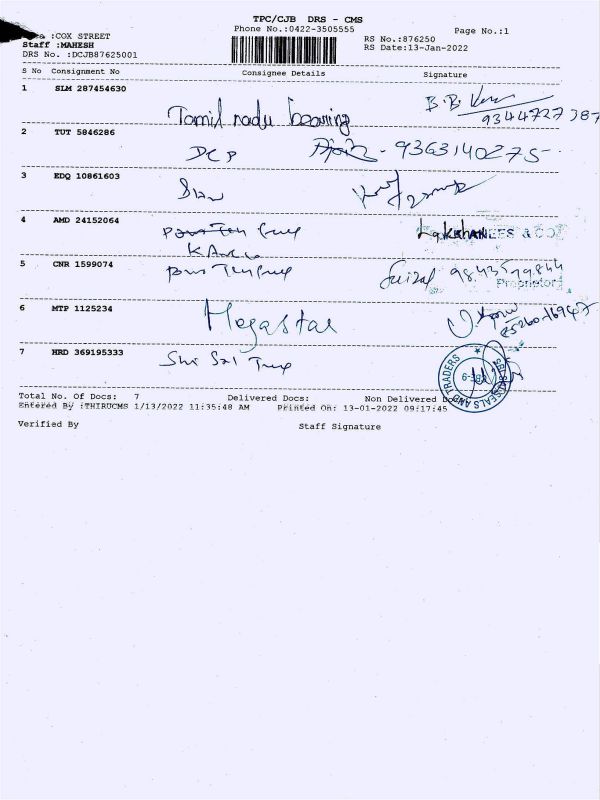 TPC/CJB DRS - CMS
Phone No.:0422-3505555
Page No.:1
:COX STREET
RS No.:876250
Staff :MAHESH
RS Date:13-Jan-2022
DRS No. :DCJB87625001
S No Consignment No Consignee Details Signature
1 SLM 287454630
Tamil nadu bearing
B.B.
9344727387
2 TUT 5846286
DCP
9363140275
3 EDQ 10861603
4 AMD 24152064
Lakshan
5 CNR 1599074
Faizal
Proprietor
6 MTP 1125234
Megastar
7 HRD 369195333
Shri Sai
SEALS AND TRADERS
Total No. Of Docs: 7 Delivered Docs: Non Delivered Docs
Entered By :THIRUCMS 1/13/2022 11:35:48 AM Printed On: 13-01-2022 09:17:45
Verified By Staff Signature